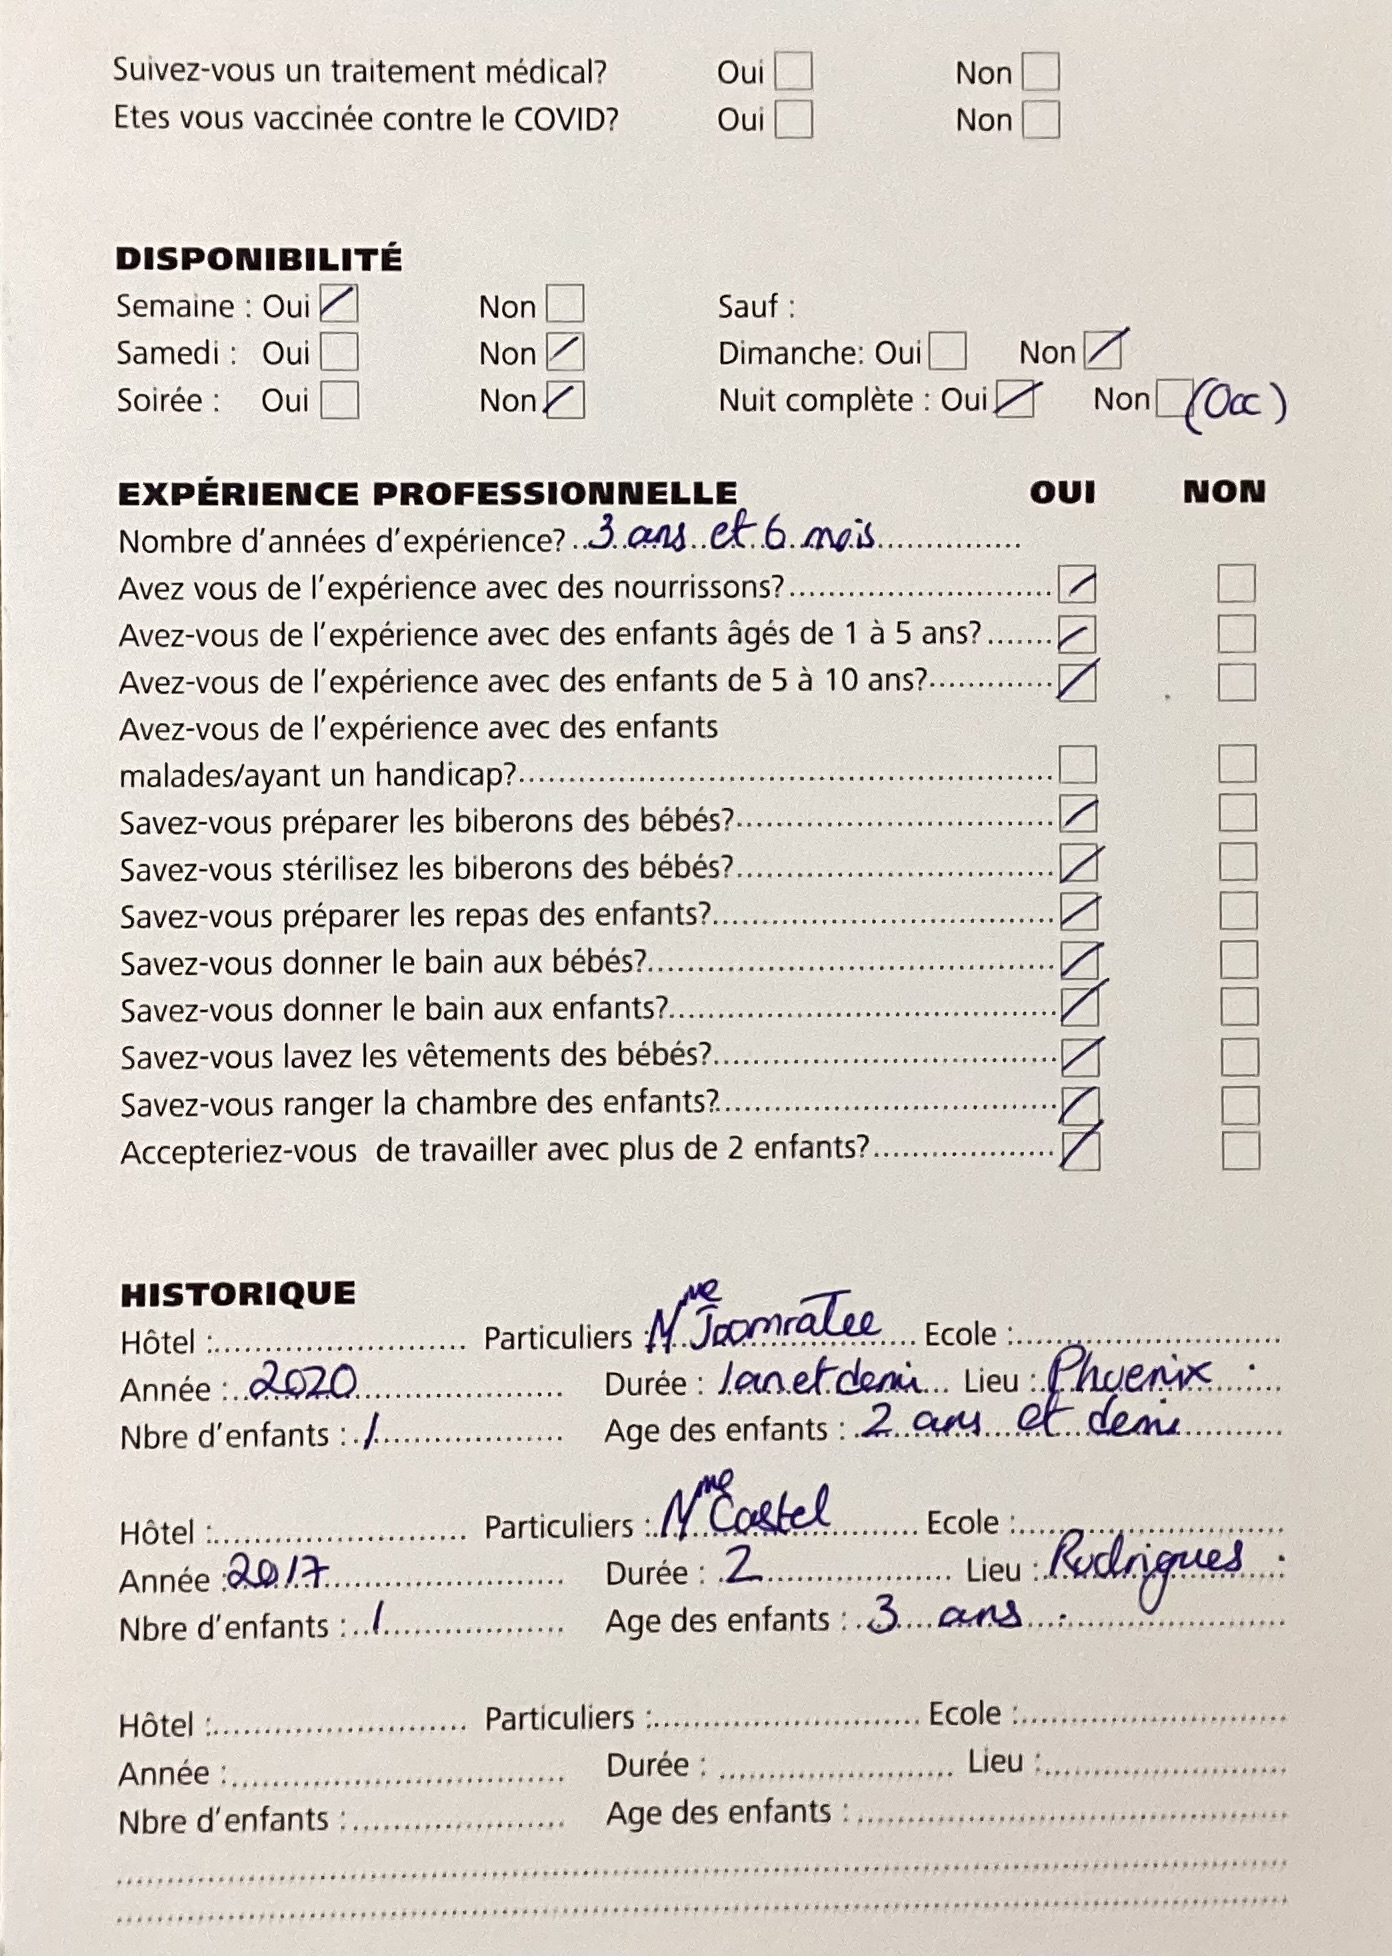 Suivez-vous un traitement médical? Oui Non
Etes vous vaccinée contre le COVID? Oui Non
DISPONIBILITÉ
Semaine : Oui Non Sauf :
Samedi : Oui Non Dimanche: Oui Non
Soirée : Oui Non Nuit complète : Oui Non (Occ)
EXPÉRIENCE PROFESSIONNELLE OUI NON
Nombre d'années d'expérience? 3 ans et 6 mois
Avez vous de l'expérience avec des nourrissons?
Avez-vous de l'expérience avec des enfants âgés de 1 à 5 ans?
Avez-vous de l'expérience avec des enfants de 5 à 10 ans?
Avez-vous de l'expérience avec des enfants
malades/ayant un handicap?
Savez-vous préparer les biberons des bébés?
Savez-vous stérilisez les biberons des bébés?
Savez-vous préparer les repas des enfants?
Savez-vous donner le bain aux bébés?
Savez-vous donner le bain aux enfants?
Savez-vous lavez les vêtements des bébés?
Savez-vous ranger la chambre des enfants?
Accepteriez-vous de travailler avec plus de 2 enfants?
HISTORIQUE
Hôtel : Particuliers : Mme Joomratee Ecole :
Année : 2020 Durée : 1 an et demi Lieu : Phoenix
Nbre d'enfants : 1 Age des enfants : 2 ans et demi
Hôtel : Particuliers : Mme Castel Ecole :
Année : 2017 Durée : 2 Lieu : Rodrigues
Nbre d'enfants : 1 Age des enfants : 3 ans
Hôtel : Particuliers : Ecole :
Année : Durée : Lieu :
Nbre d'enfants : Age des enfants :